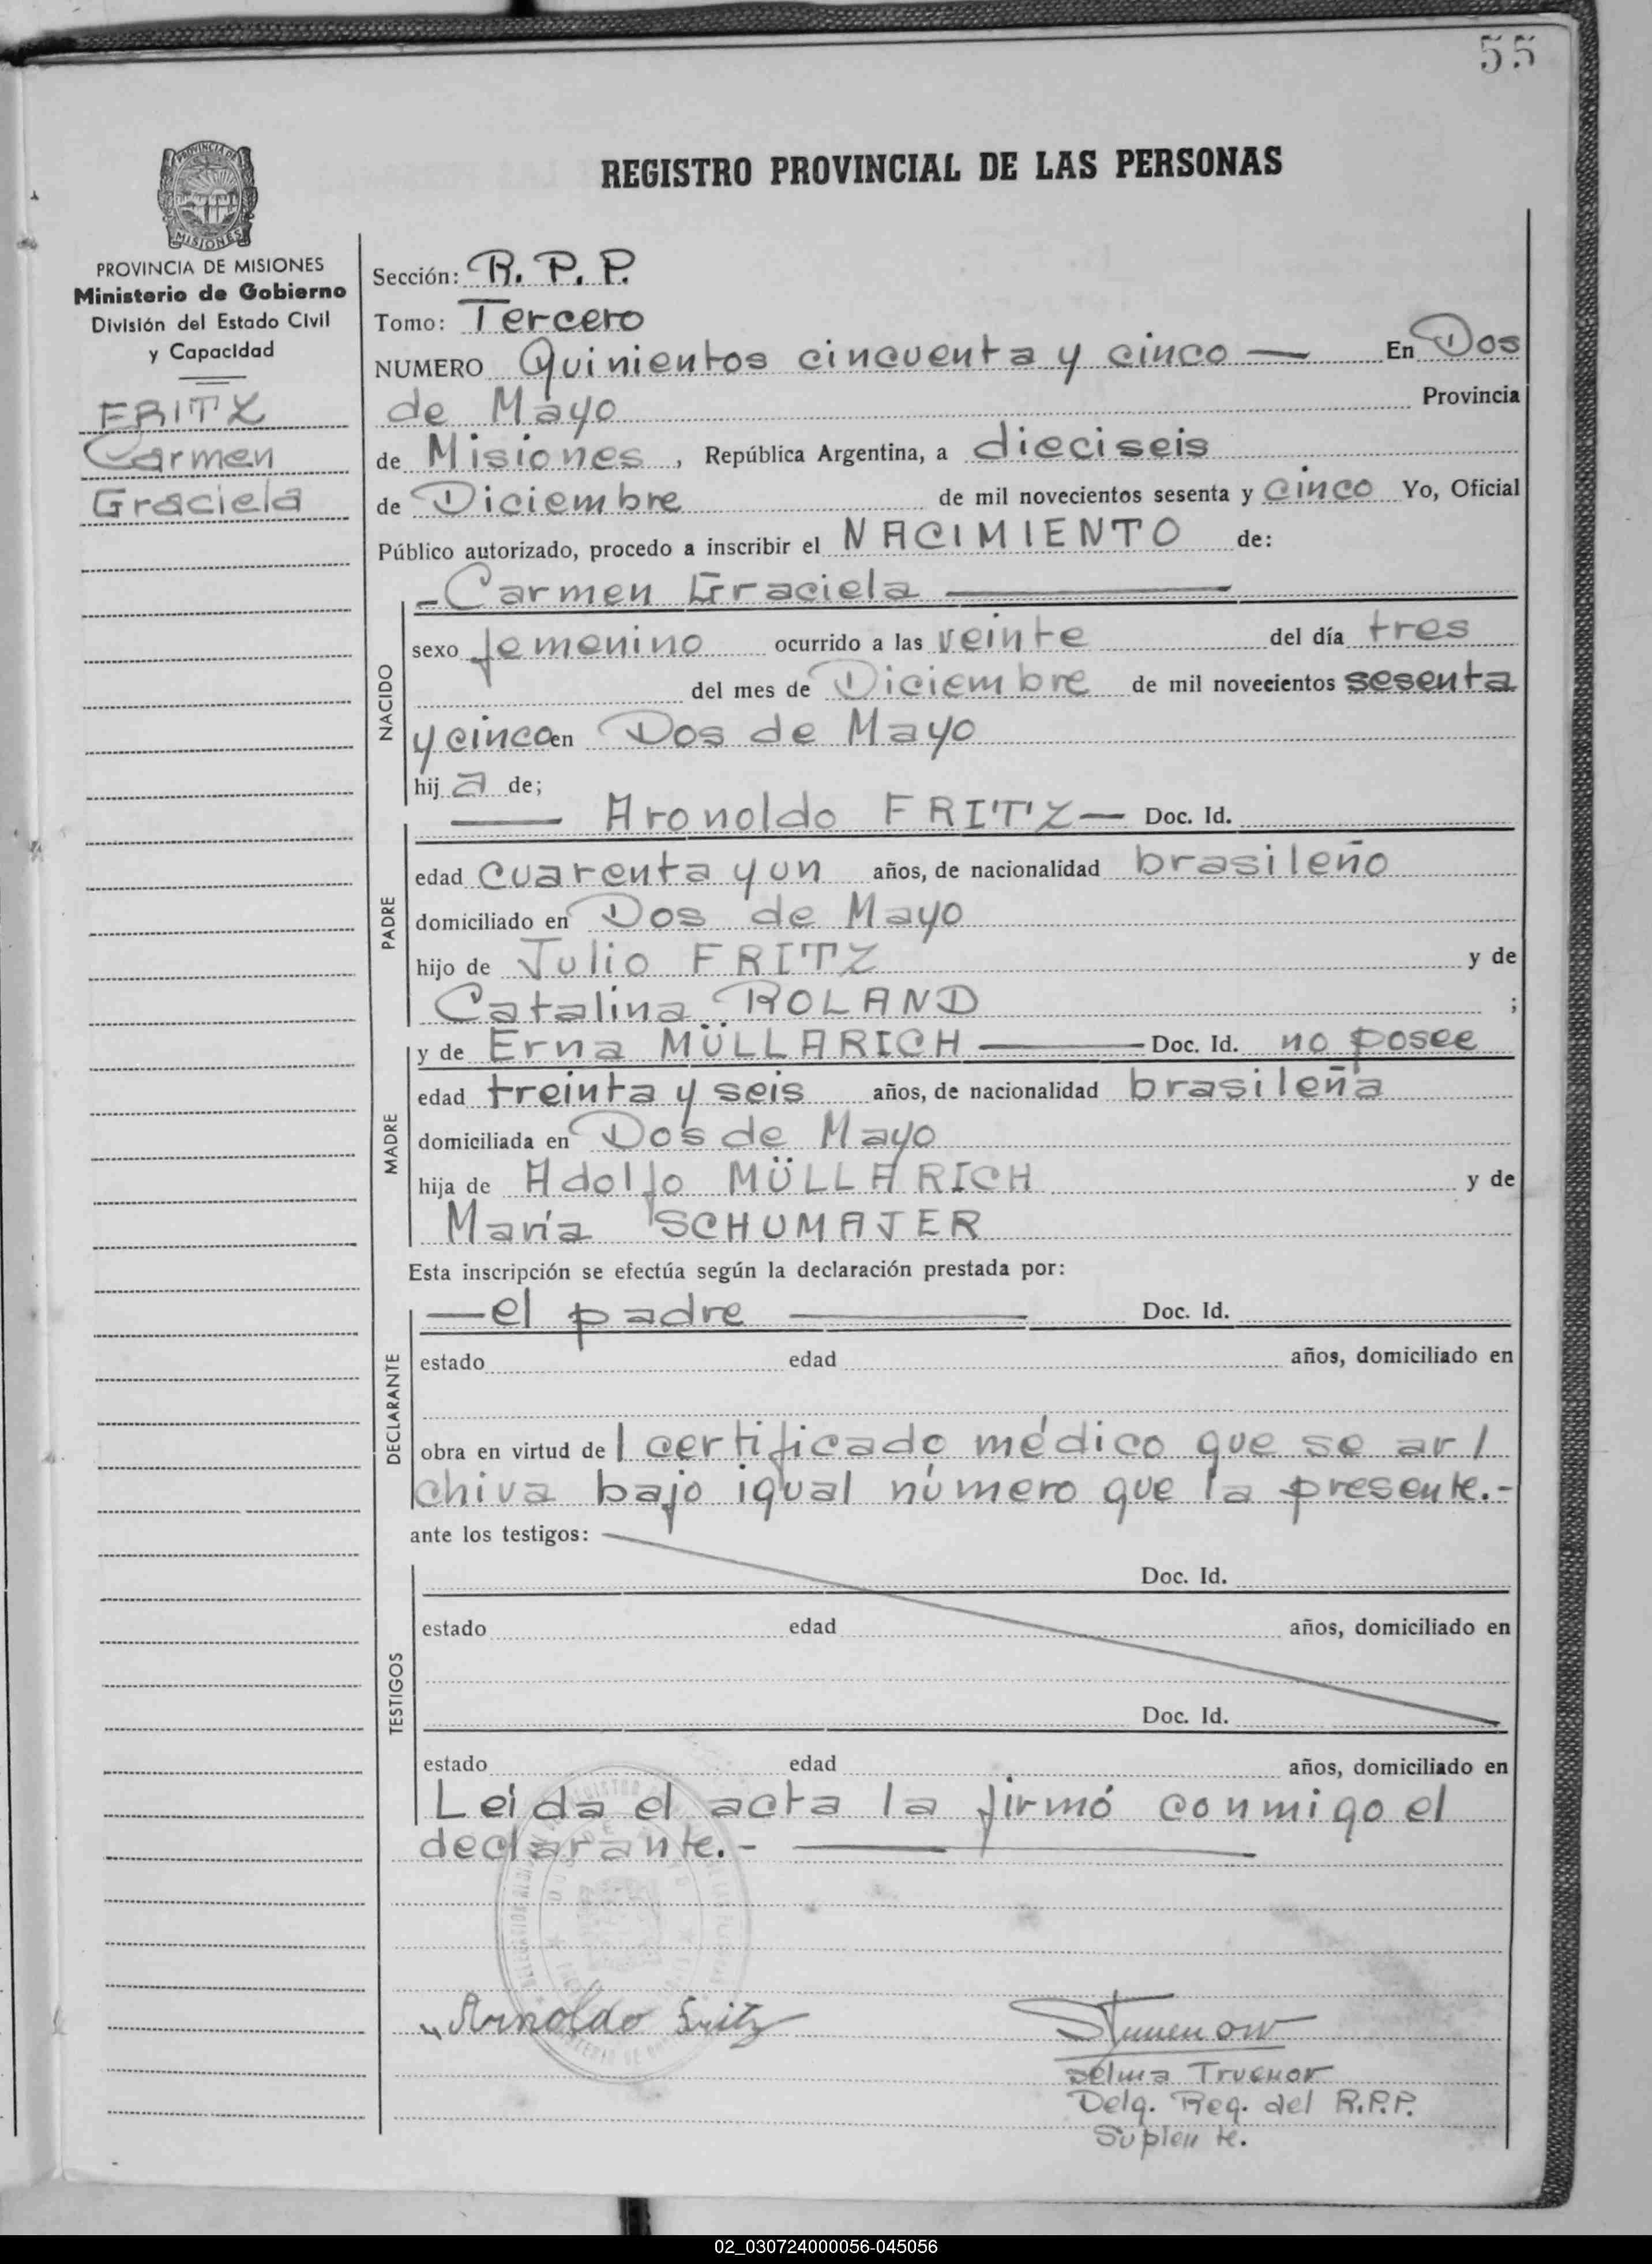 55
REGISTRO PROVINCIAL DE LAS PERSONAS
PROVINCIA DE
MISIONES
PROVINCIA DE MISIONES
Ministerio de Gobierno
División del Estado Civil
y Capacidad
FRITZ
Carmen
Graciela
Sección: R. P. P.
Tomo: Tercero
NUMERO Quinientos cincuenta y cinco — En Dos
de Mayo Provincia
de Misiones, República Argentina, a dieciseis
de Diciembre de mil novecientos sesenta y cinco Yo, Oficial
Público autorizado, procedo a inscribir el NACIMIENTO de:
- Carmen Graciela —
NACIDO
sexo femenino ocurrido a las veinte del día tres
del mes de Diciembre de mil novecientos sesenta
y cinco en Dos de Mayo
hij a de;
— Aronoldo FRITZ — Doc. Id.
PADRE
edad cuarenta y un años, de nacionalidad brasileño
domiciliado en Dos de Mayo
hijo de Julio FRITZ y de
Catalina ROLAND ;
y de Erna MÜLLARICH — Doc. Id. no posee
MADRE
edad treinta y seis años, de nacionalidad brasileña
domiciliada en Dos de Mayo
hija de Adolfo MÜLLARICH y de
María SCHUMAJER
Esta inscripción se efectúa según la declaración prestada por:
— el padre — Doc. Id.
DECLARANTE
estado edad años, domiciliado en
obra en virtud de l certificado médico que se ar/
chiva bajo igual número que la presente.-
ante los testigos:
Doc. Id.
TESTIGOS
estado edad años, domiciliado en
Doc. Id.
estado edad años, domiciliado en
Leida el acta la firmó conmigo el
declarante.- —
Arnoldo Fritz
Selma Truenow
Delg. Reg. del R.P.P.
Suplente.
02_030724000056-045056